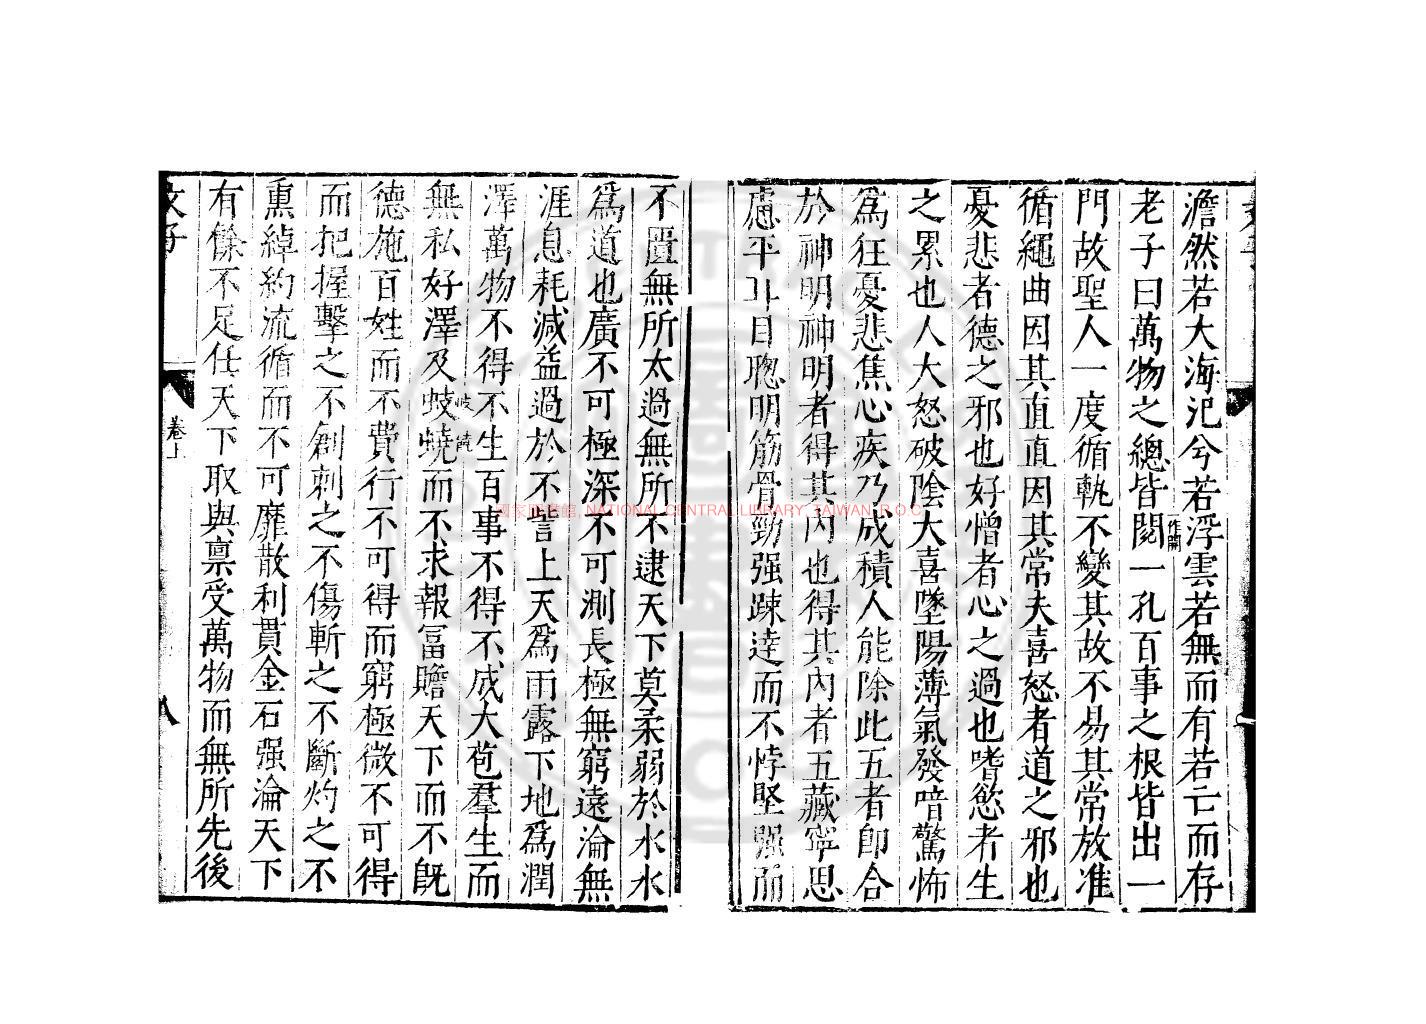 澹然若大海汜兮若浮雲若無而有若亡而存
老子曰萬物之總皆閱一作關一孔百事之根皆出一
門故聖人一度循軌不變其故不易其常放准
循繩曲因其直直因其常夫喜怒者道之邪也
憂悲者德之邪也好憎者心之過也嗜慾者生
之累也人大怒破陰大喜墜陽薄氣發喑驚怖
為狂憂悲焦心疾乃成積人能除此五者即合
於神明神明者得其內也得其內者五藏寧思
慮平耳目聰明筋骨勁强疎達而不悖堅强而
不匱無所太過無所不逮天下莫柔弱於水水
為道也廣不可極深不可測長極無窮遠淪無
涯息耗減益過於不訾上天為雨露下地為潤
澤萬物不得不生百事不得不成大苞羣生而
無私好澤及蚑岐蟯饒而不求報冨贍天下而不旣
德施百姓而不費行不可得而窮極微不可得
而把握擊之不創刺之不傷斬之不斷灼之不
熏綽約流循而不可靡散利貫金石强淪天下
有餘不足任天下取與禀受萬物而無所先後
文子
卷上
八
國家圖書館, NATIONAL CENTRAL LIBRARY, TAIWAN, R.O.C